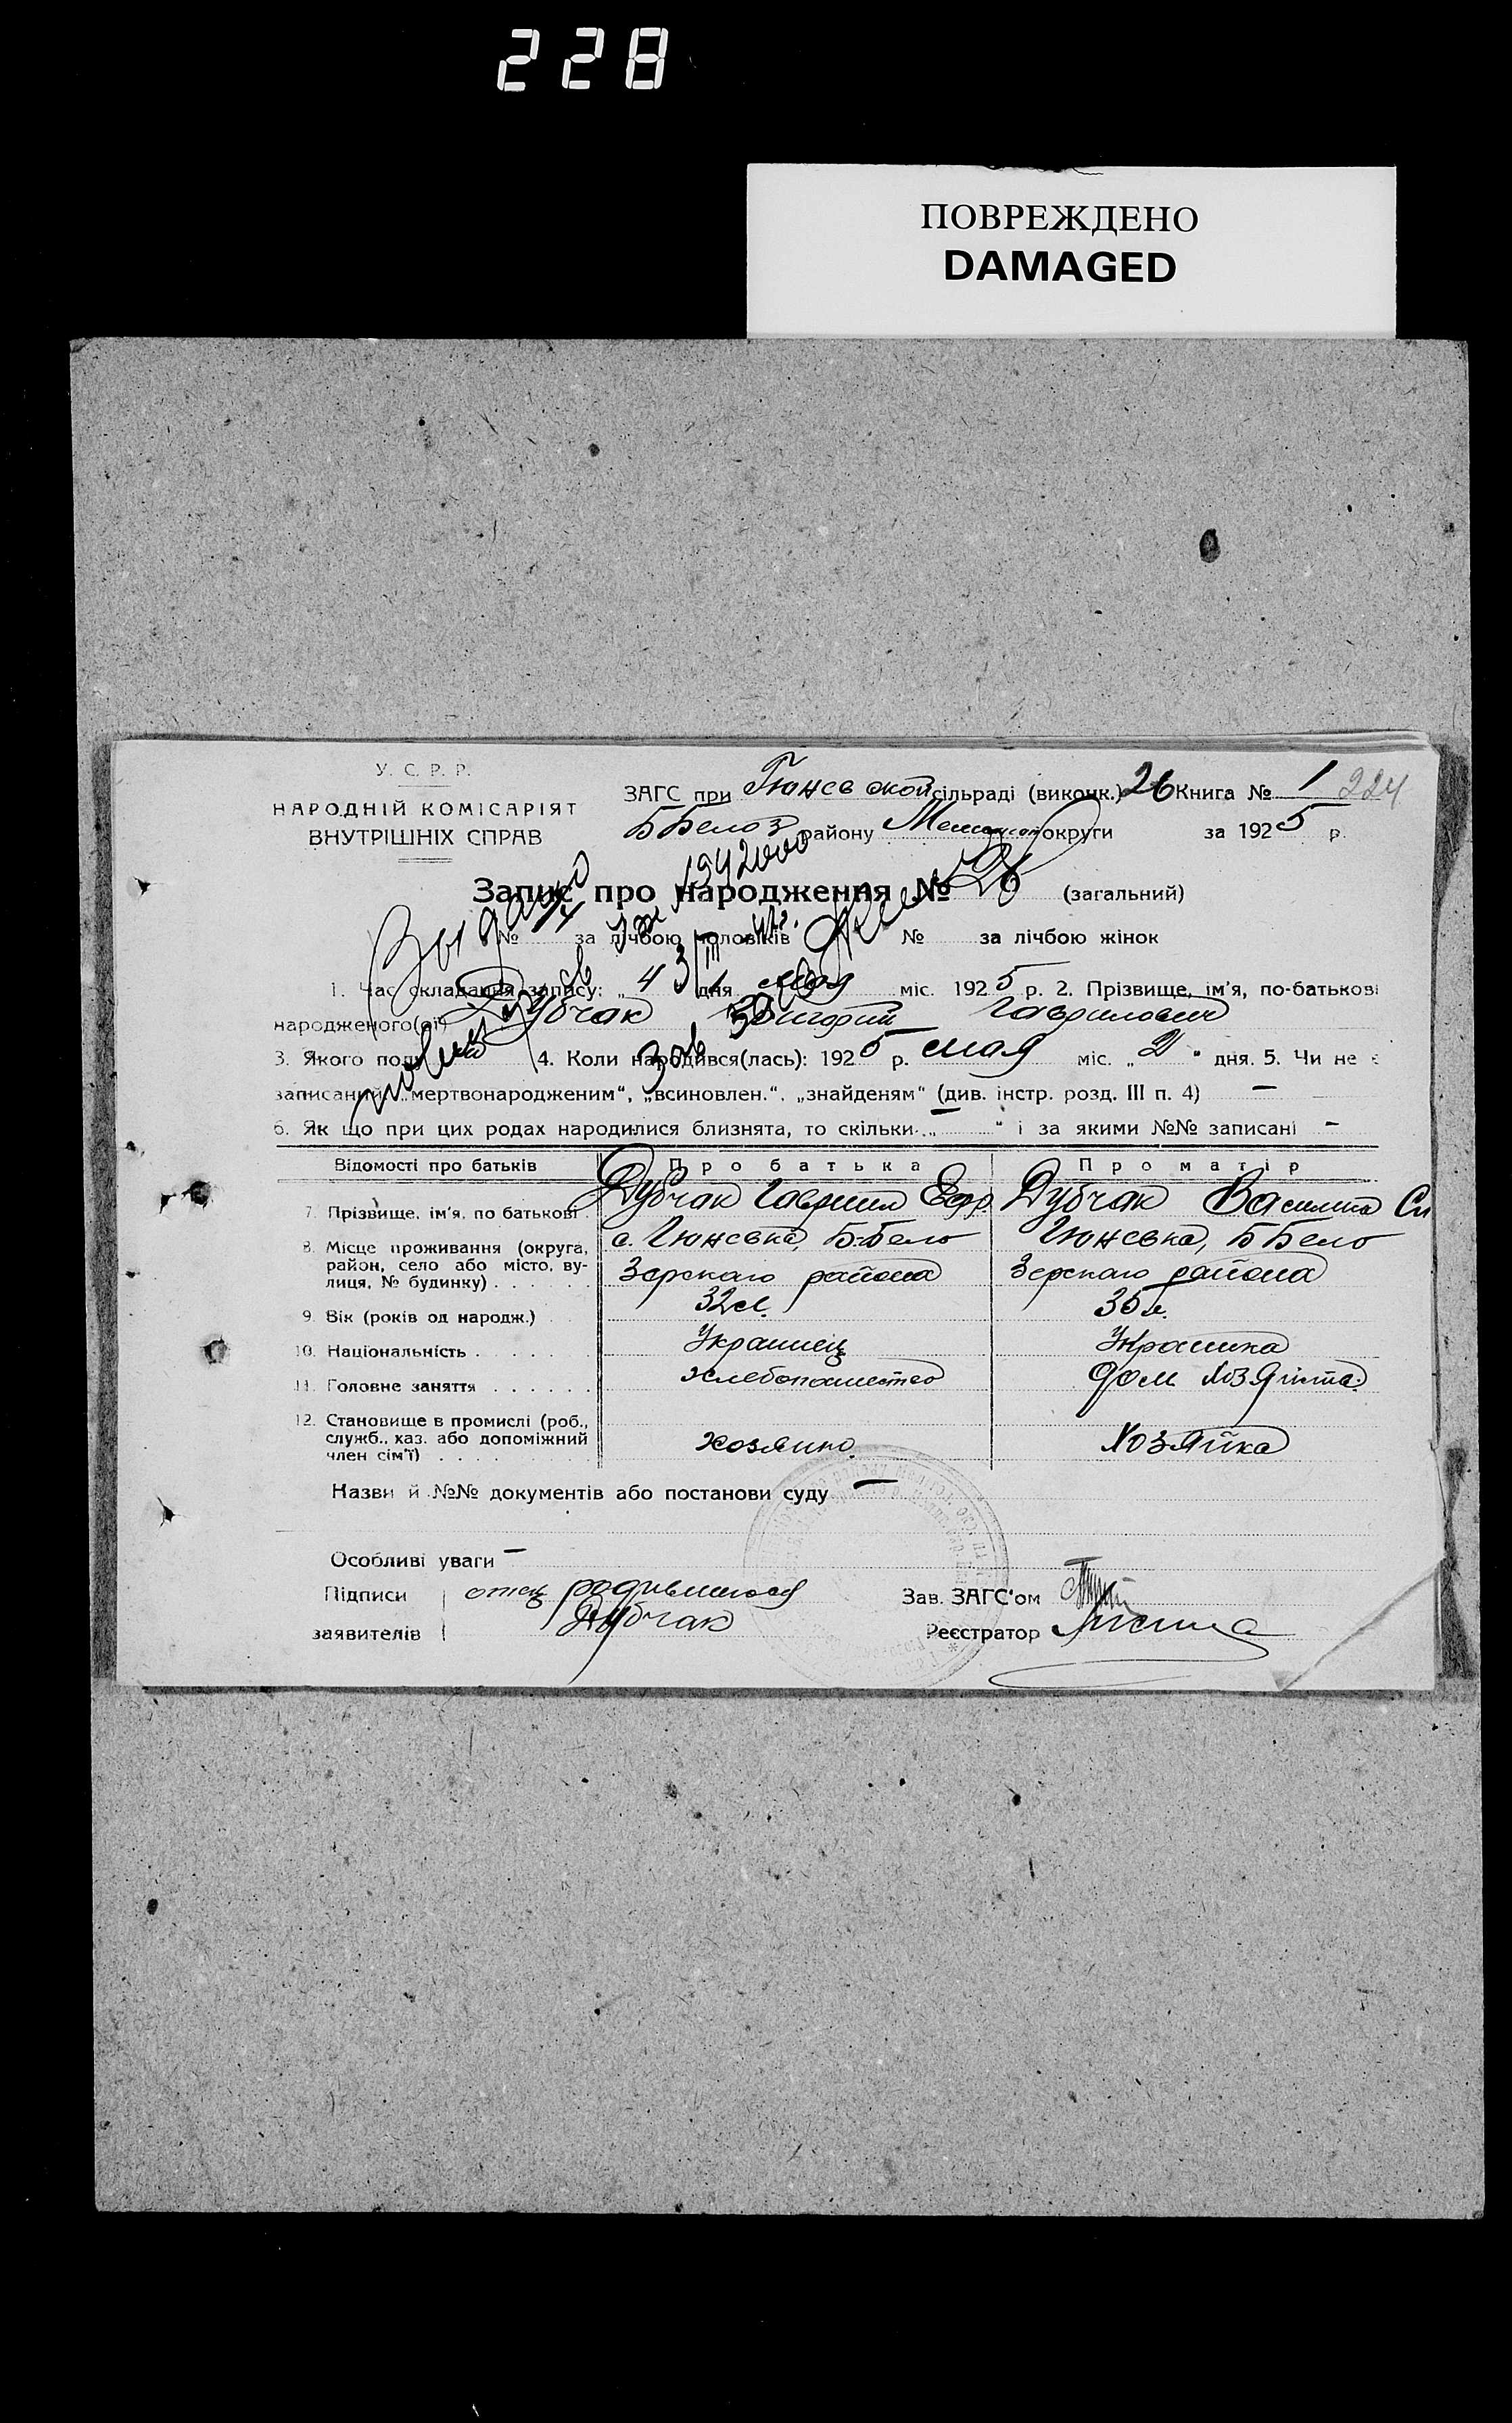 228
ПОВРЕЖДЕНО
DAMAGED
У. С. Р. Р.
НАРОДНІЙ КОМІСАРІЯТ
ВНУТРІШНІХ СПРАВ
ЗАГС при Гюневской сільраді (виконк.) 26 Книга № 1 224
ББелоз району округи за 1925 р.
Запис про народження № 26 (загальний)
№ 14 за лічбою чоловіків № за лічбою жінок
1. Час складання запису: „4 дня мая міс. 1925 р. 2. Прізвище, ім'я, по-батькові
народженого(ої) Дубчак Григорий Гаврилович
3. Якого полу 4. Коли народився(лась): 1925 р. мая міс. „2" дня. 5. Чи не є
записаний: „мертвонародженим", „всиновлен.", „знайденям" (див. інстр. розд. III п. 4) —
6. Як що при цих родах народилися близнята, то скільки „—" і за якими №№ записані —
Відомості про батьків Про батька Про матір
7. Прізвище, ім'я, по батькові Дубчак Гавриил Дубчак
8. Місце проживання (округа, район, село або місто, вулиця, № будинку) с. Гюневка, Б-Бело Гюневка, ББело
зерскаго района зерскаго района
9. Вік (років од народж.) 32 л. 35 л.
10. Національність Украинец Украинка
11. Головне заняття хлебопашество дом
12. Становище в промислі (роб.,
служб., хаз. або допоміжний
член сім'ї) хозяин хозяйка
Назви й №№ документів або постанови суду —
Особливі уваги —
Підписи отец родившегося Зав. ЗАГС'ом
заявителів Дубчак Реєстратор